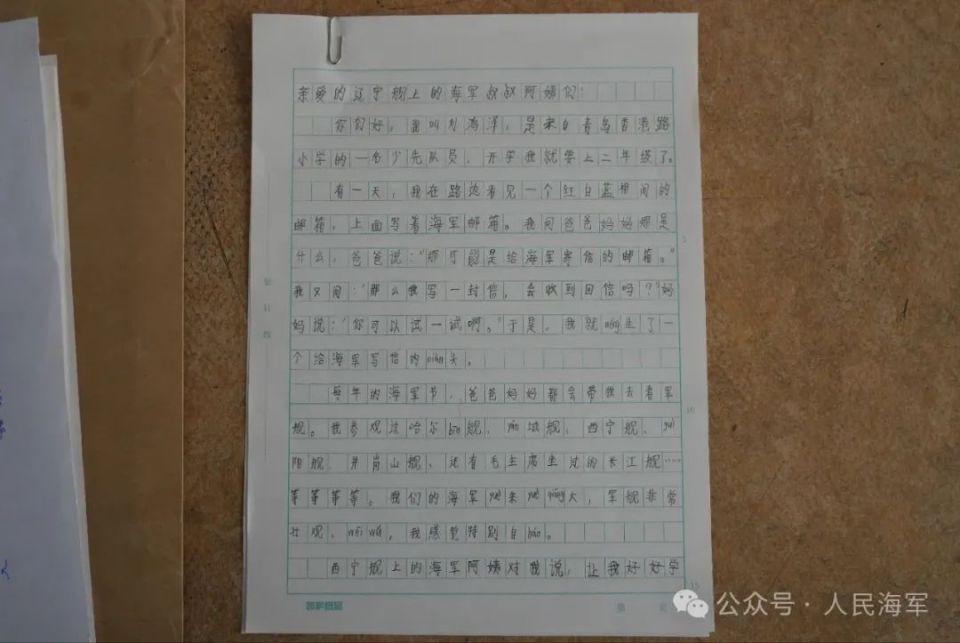 亲爱的辽宁舰上的海军叔叔阿姨们:
你们好,我叫刘鸿洋,是来自青岛香港路
小学的一名少先队员,开学我就要上二年级了。
有一天,我在路边看见一个红白蓝相间的
邮箱,上面写着海军邮箱。我问爸爸妈妈那是
什么,爸爸说:“那可能是给海军寄信的邮箱。”
我又问:“那么我写一封信,会收到回信吗?”妈
妈说:“你可以试一试啊。”于是,我就méng生了一
个给海军写信的niàn头。
每年的海军节,爸爸妈妈都会带我去看军
舰。我参观过哈尔bīn舰,yān城舰,西宁舰、guì
阳舰、井岗山舰、还有毛主席坐过的长江舰……
等等等等。我们的海军yuè来yuè qiáng大,军舰非常
壮观、wēi wǔ,我感觉特别自háo。
西宁舰上的海军阿姨对我说,让我好好学
15
公众号·人民海军